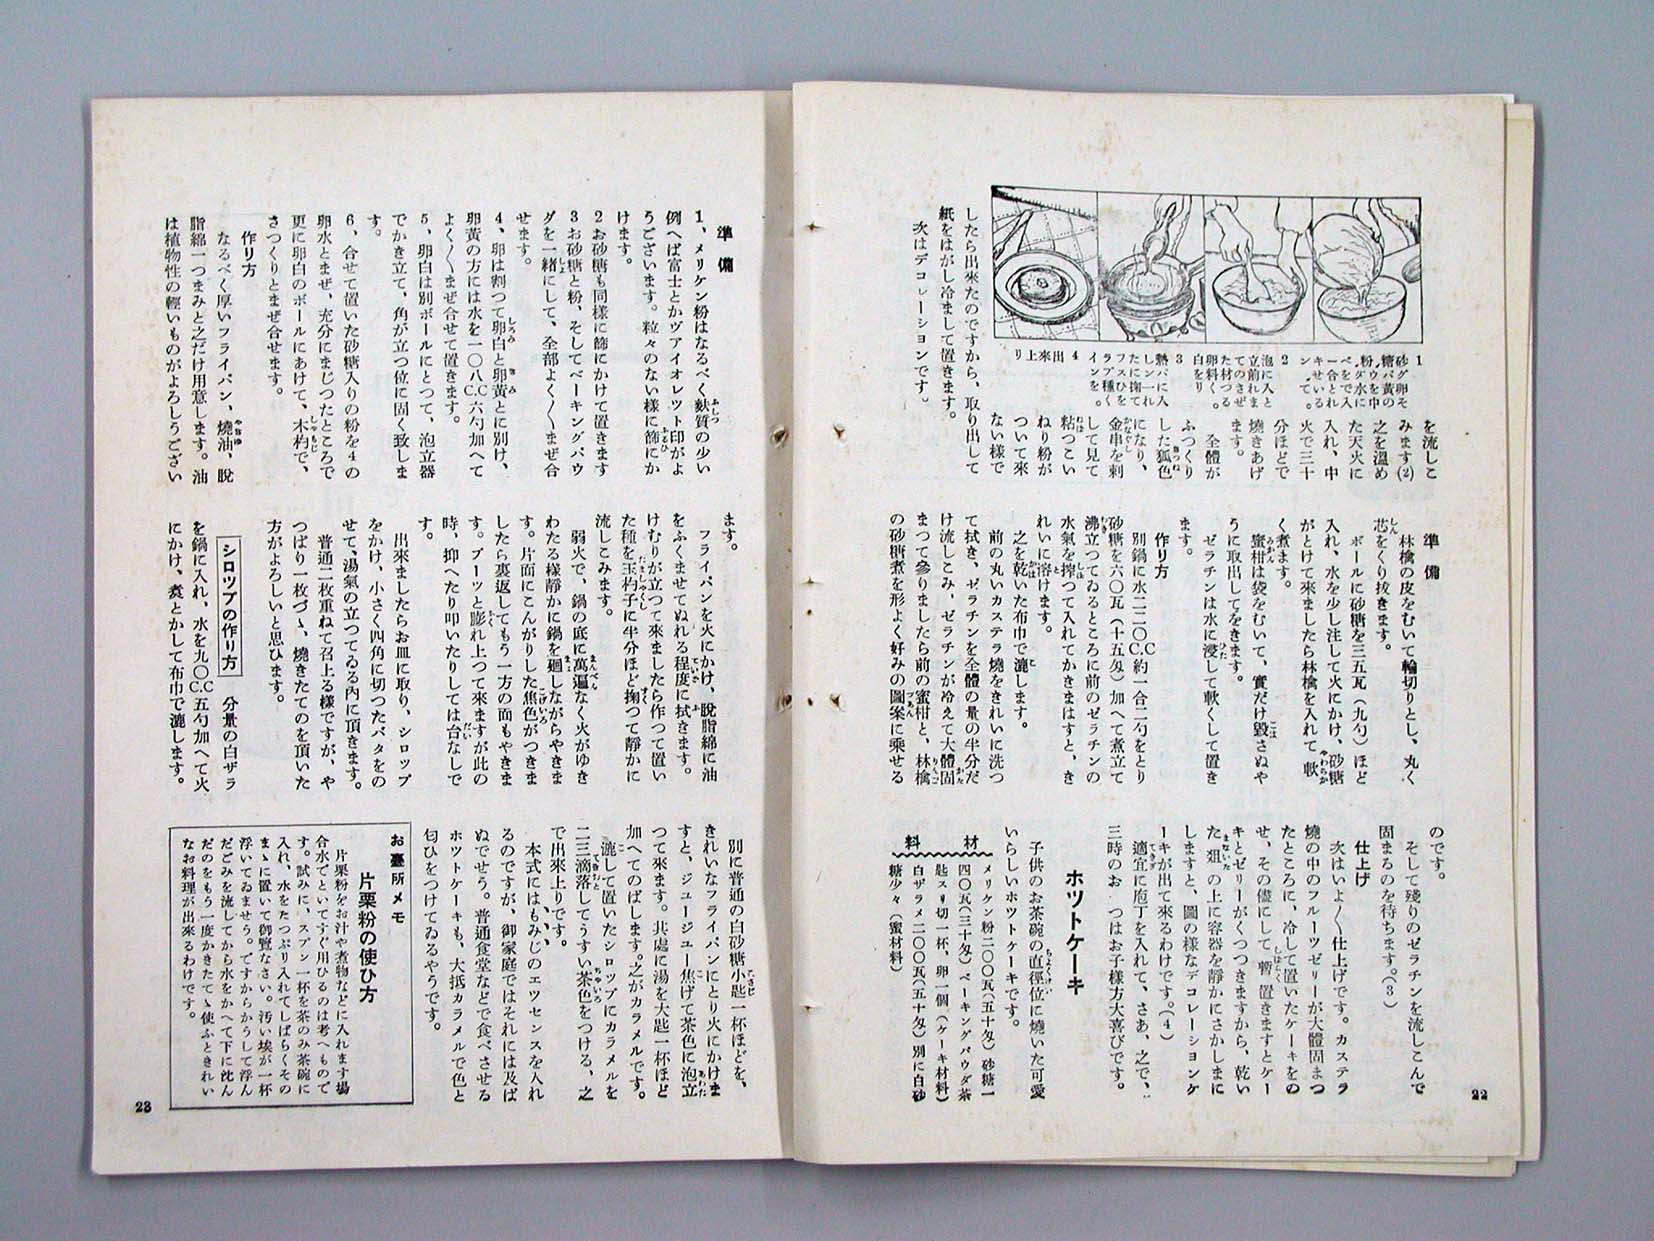 1 卵黄の中にそ
水でとかして
2 泡立てた卵
3 熱したフライ
4 出來上り
を流しこ
みます(2)
之を温め
た天火に
入れ、中
火で三十
分ほどで
燒きあげ
ます。
全體が
ふつくり
した狐色
になり、
金串を刺
して見て
粘つこい
ねり粉が
ついて來
ない様で
したら出來たのですから、取り出して
紙をはがし冷まして置きます。
次はデコレーションです。
準備
林檎の皮をむいて輪切りとし、丸く
芯をくり抜きます。
ボールに砂糖を三五瓦(九匁)ほど
入れ、水を少し注して火にかけ、砂糖
がとけて來ましたら林檎を入れて軟
く煮ます。
蜜柑は袋をむいて、實だけ毀さぬや
うに取出してをきます。
ゼラチンは水に浸して軟くして置き
ます。
作り方
別鍋に水二二〇C.C.約一合二勺をとり
砂糖を六〇瓦(十五匁)加へて煮立て
沸立つてゐるところに前のゼラチンの
水氣を搾つて入れてかきまはすと、き
れいに溶けます。
之を乾いた布巾で漉します。
前の丸いカステラ燒をきれいに洗つ
て拭き、ゼラチンを全體の量の半分だ
け流しこみ、ゼラチンが冷えて大體固
まつて參りましたら前の蜜柑と、林檎
の砂糖煮を形よく好みの圖案に乘せる
のです。
そして殘りのゼラチンを流しこんで
固まるのを待ちます。(3)
仕上げ
次はいよ〱仕上げです。カステラ
燒の中のフルーツゼリーが大體固まつ
たところに、冷して置いたケーキをの
せ、その儘にして暫く置きますとケー
キとゼリーがくつつきますから、乾い
た俎の上に容器を靜かにさかしまに
しますと、圖の様なデコレーションケ
ーキが出て來るわけです。(4)
適宜に庖丁を入れて、さあ、之で、
三時のおやつはお子様方大喜びです。
ホツトケーキ
子供のお茶碗の直徑位に燒いた可愛
いらしいホツトケーキです。
材料
メリケン粉二〇〇瓦(五十匁)砂糖一
四〇瓦(三十匁)ベーキングパウダ茶
匙スリ切一杯、卵一個(ケーキ材料)
白ザラメ二〇〇瓦(五十匁)別に白砂
糖少々(蜜材料)
22
準備
1、メリケン粉はなるべく麩質の少い
例へば富士とかヴアイオレツト印がよ
うございます。粒々のない様に篩にか
けます。
2お砂糖も同様に篩にかけて置きます
3お砂糖と粉、そしてベーキングパウ
ダを一緒にして、全部よく〱まぜ合
せます。
4、卵は割つて卵白と卵黄とに別け、
卵黄の方には水を一〇八C.C.六勺加へて
よく〱まぜ合せて置きます。
5、卵白は別ボールにとつて、泡立器
でかき立て、角が立つ位に固く致しま
す。
6、合せて置いた砂糖入りの粉を4の
卵水とまぜ、充分にまじつたところで
更に卵白のボールにあけて、木杓で、
さつくりとまぜ合せます。
作り方
なるべく厚いフライパン、燒油、脱
脂綿一つまみと之だけ用意します。油
は植物性の輕いものがよろしうござい
ます。
フライパンを火にかけ、脱脂綿に油
をふくませてぬれる程度に拭きます。
けむりが立つて來ましたら作つて置い
た種を玉杓子に半分ほど掬つて靜かに
流しこみます。
弱火で、鍋の底に萬遍なく火がゆき
わたる様靜かに鍋を廻しながらやきま
す。片面にこんがりした焦色がつきま
したら裏返してもう一方の面もやきま
す。プーツと膨れ上つて來ますが此の
時、抑へたり叩いたりしては台なしで
す。
出來ましたらお皿に取り、シロツプ
をかけ、小さく四角に切つたバタをの
せて、湯氣の立つてゐる内に頂きます。
普通二枚重ねて召上る様ですが、や
つぱり一枚づゝ、燒きたてのを頂いた
方がよろしいと思ひます。
シロツプの作り方 分量の白ザラ
を鍋に入れ、水を九〇C.C.五勺加へて火
にかけ、煮とかして布巾で漉します。
別に普通の白砂糖小匙一杯ほどを、
きれいなフライパンにとり火にかけま
すと、ジユージユー焦げて茶色に泡立
つて來ます。其處に湯を大匙一杯ほど
加へてのばします。之がカラメルです。
漉して置いたシロツプにカラメルを
二三滴落してうすい茶色をつける、之
で出來上りです。
本式にはもみじのエツセンスを入れ
るのですが、御家庭ではそれには及ば
ぬでせう。普通食堂などで食べさせる
ホツトケーキも、大抵カラメルで色と
匂ひをつけてゐるやうです。
お臺所メモ
片栗粉の使ひ方
片栗粉をお汁や煮物などに入れます場
合水でといてすぐ用ひるのは考へもので
す。試みに、スプン一杯を茶のみ茶碗に
入れ、水をたつぷり入れてしばらくその
まゝに置いて御覽なさい。汚い埃が一杯
浮いてゐませう。ですからかうして浮ん
だごみを流してから水をかへて下に沈ん
だのをもう一度かきたてゝ使ふときれい
なお料理が出來るわけです。
23